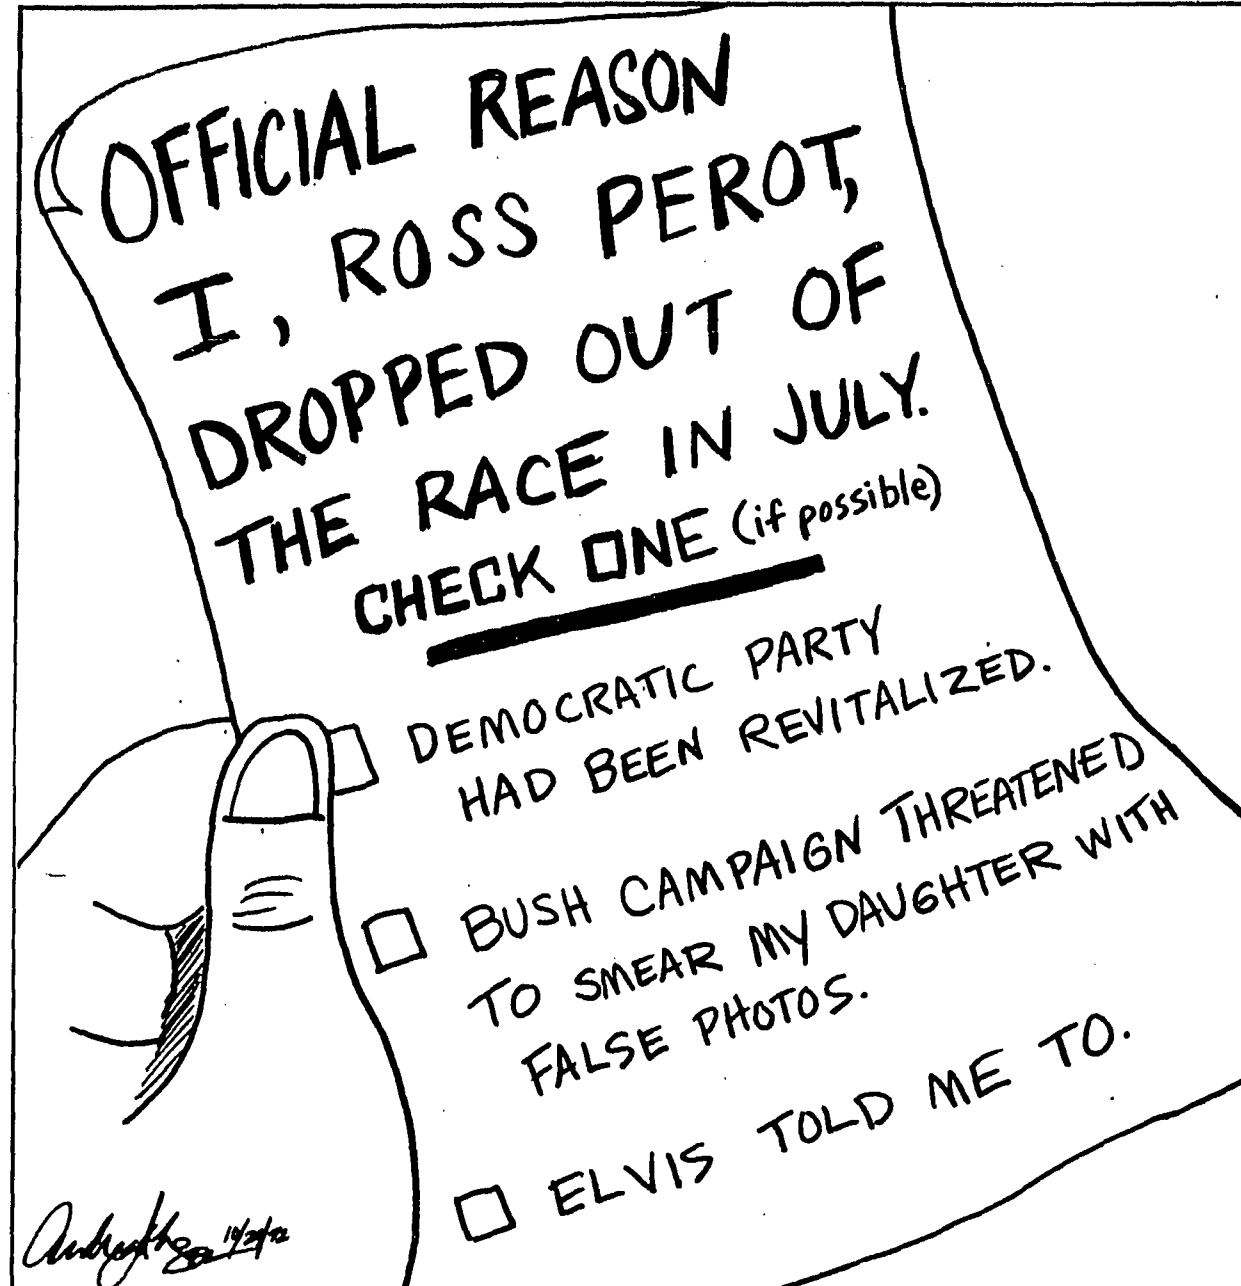 OFFICIAL REASON
I, ROSS PEROT,
DROPPED OUT OF
THE RACE IN JULY.
CHECK ONE (if possible)
DEMOCRATIC PARTY
HAD BEEN REVITALIZED.
BUSH CAMPAIGN THREATENED
TO SMEAR MY DAUGHTER WITH
FALSE PHOTOS.
ELVIS TOLD ME TO.